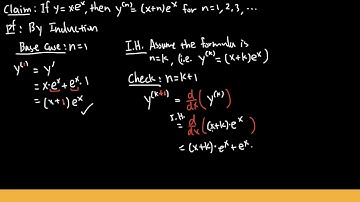 Claim: If y=x·eˣ, then y⁽ⁿ⁾=(x+n)eˣ for n=1,2,3,...
Pf: By Induction
Base Case: n=1
y⁽¹⁾ = y'
= x·eˣ+eˣ·1
= (x+1)eˣ ✓
I.H. Assume the formula is
n=k, (i.e. y⁽ᵏ⁾=(x+k)eˣ)
Check: n=k+1
y⁽ᵏ⁺¹⁾ = d/dx (y⁽ᵏ⁾)
I.H.
= d/dx ((x+k)·eˣ)
= (x+k)·eˣ+eˣ·